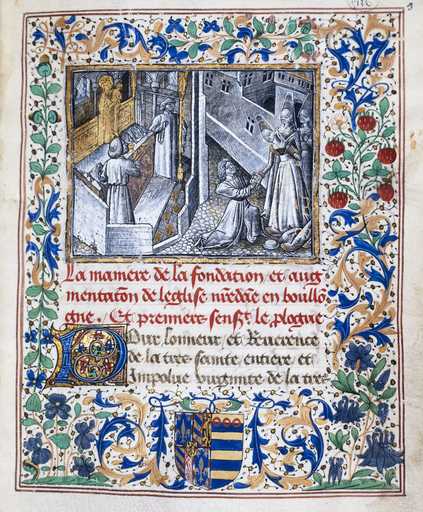 La maniere de la fondation et aug
mentation de leglise nr̃edãe en boullo
gne. Et premiers sensᵗ le plogue
Pour lonneur et Reuerence
de la tres sainte entiere et
Impolue virginite de la tres